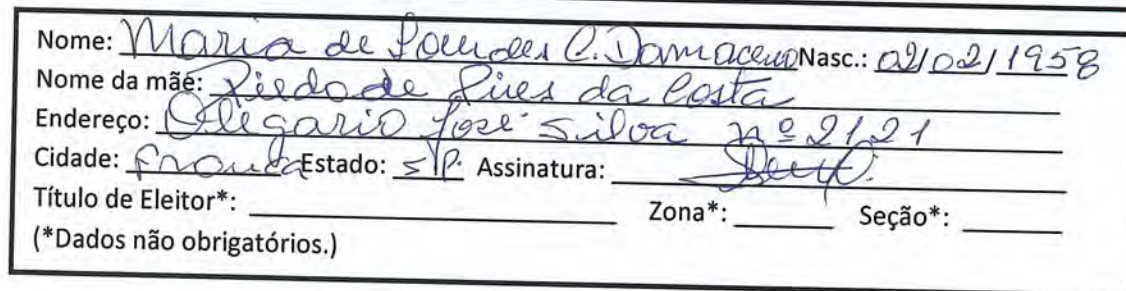 Nome: Maria de Lourdes C. Damaceno Nasc.: 02/02/1958
Nome da mãe: Piedade Pires da Costa
Endereço: Olegario José Silva nº 2121
Cidade: Franca Estado: SP. Assinatura:
Título de Eleitor*: Zona*: Seção*:
(*Dados não obrigatórios.)